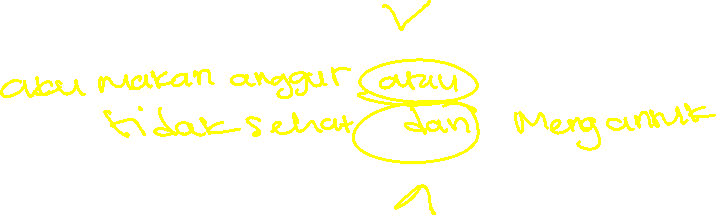 ∨
aku makan anggur atau
tidak sehat dan Mengantuk
∧